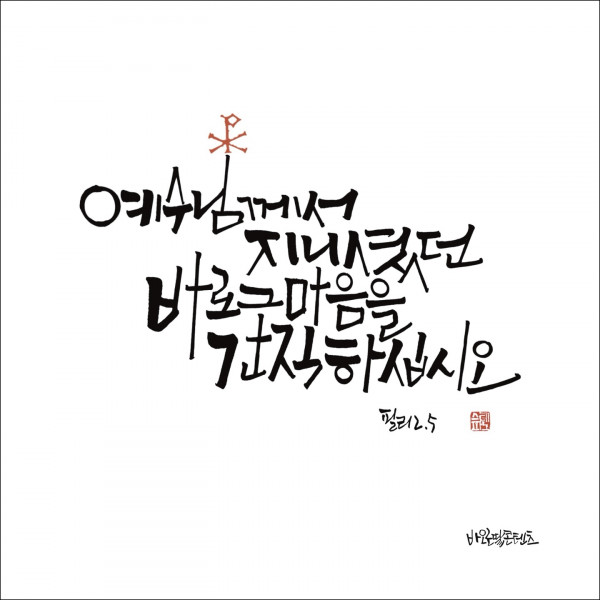 예수님께서
지니셨던
바로 그 마음을
간직하십시오
필리 2.5
바오로딸콘텐츠